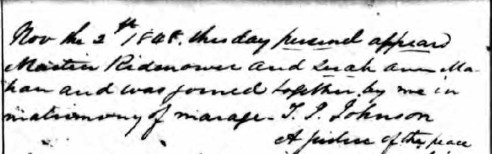 Nov the 2th 1848. this day personel appeard
Martin Ridenower and Sarah ann Ma-
han and was joined together by me in
matrimony of marage - T. P. Johnson
A justice of the peace